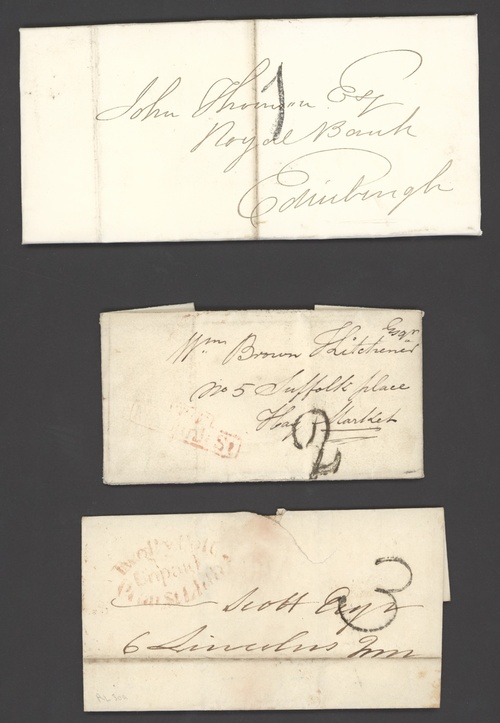 John Thomson Esq
1
Royal Bank
Edinburgh
Esqr
Wm Brown Hitchener
No 5 Suffolk place
Hay Market
St
2
Twopy Post
Unpaid
3
Scott Esqr
6 Lincolns Inn